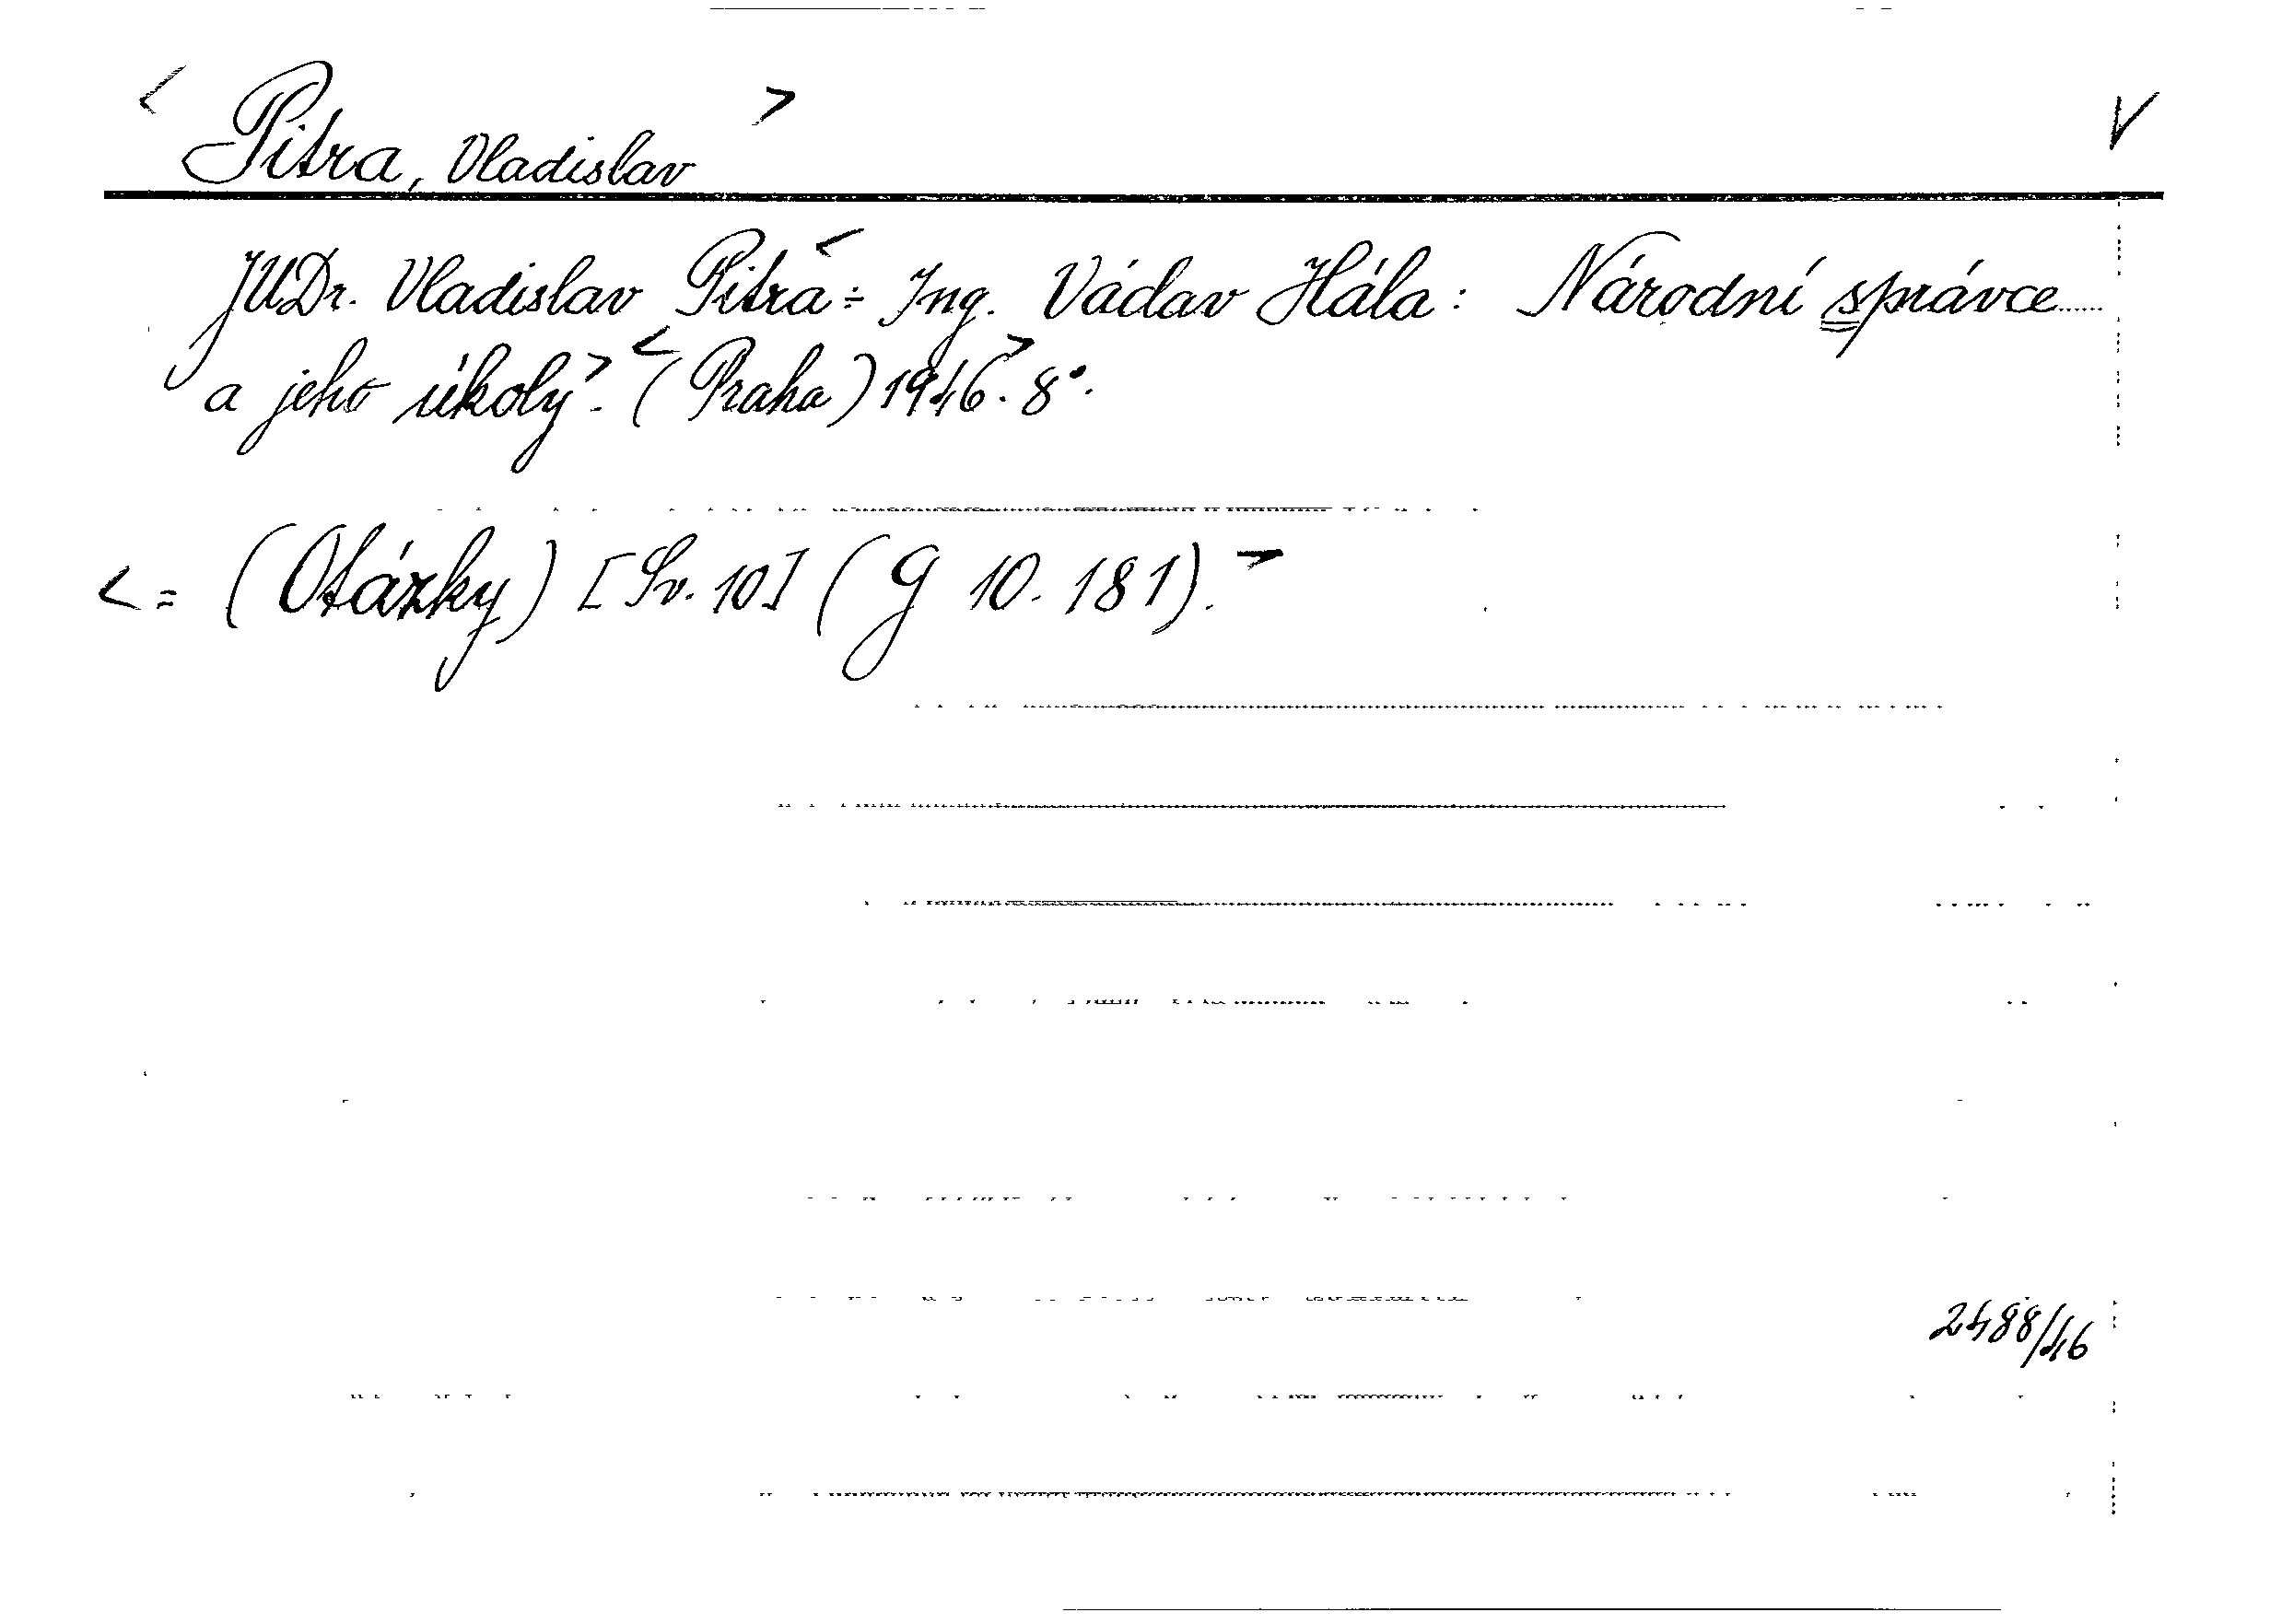 < Pitra, Vladislav > V
JUDr. Vladislav Pitra < ÷ Ing. Václav Hála: Národní správce
a jeho úkoly >. < (Praha) 1946 >. 8°.
< = (Otázky) [Sv. 10] (G 10. 181). >
2488/46